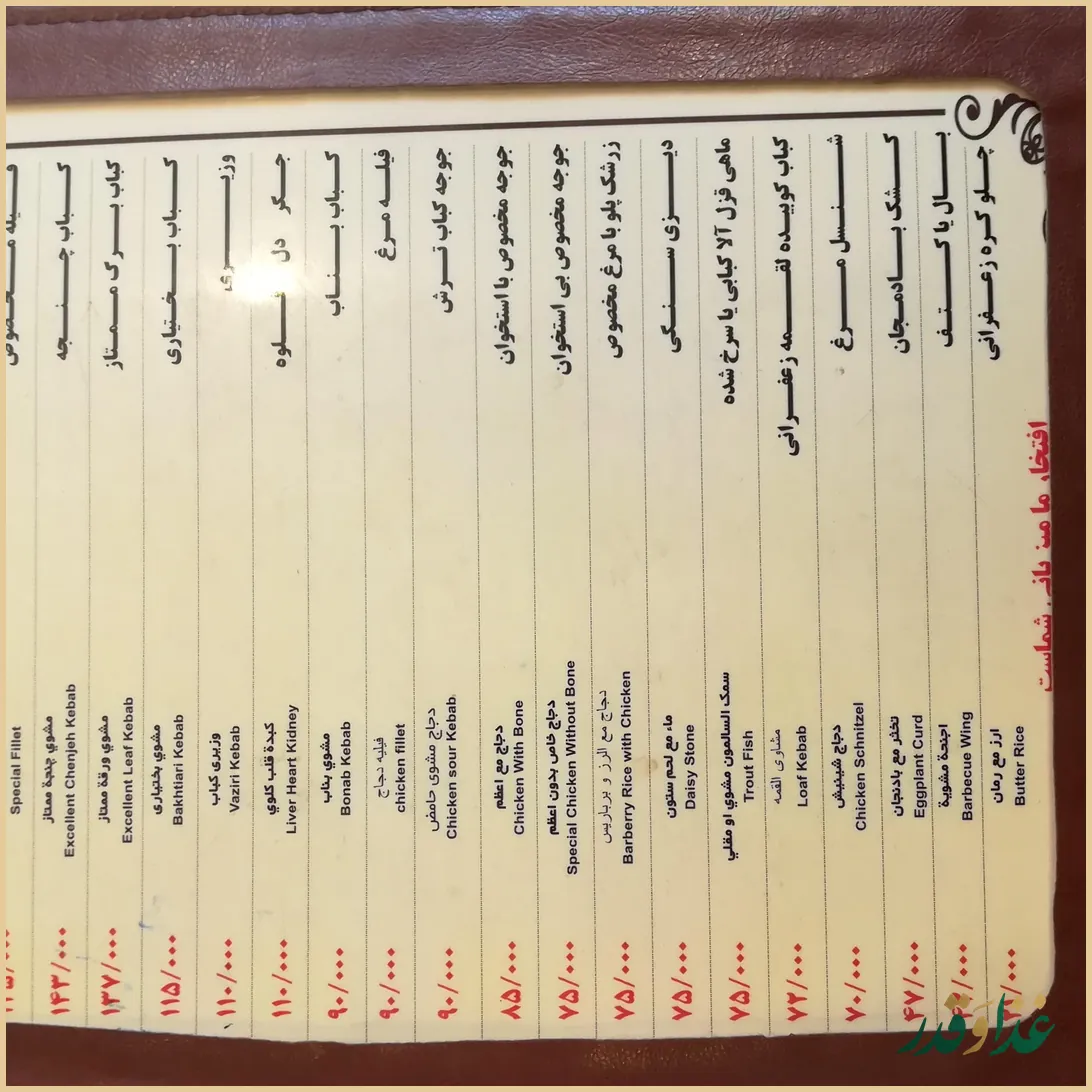 فیله مخصوص
Special Fillet
کباب چنجه
مشوي چنجة ممتاز
Excellent Chenjeh Kebab
۱۴۳/۰۰۰
کباب برگ ممتاز
مشوي ورقة ممتاز
Excellent Leaf Kebab
۱۳۷/۰۰۰
کباب بختیاری
مشوي بختیاری
Bakhtiari Kebab
۱۱۵/۰۰۰
وزیری
وزیری کباب
Vaziri Kebab
۱۱۰/۰۰۰
جگر دل قلوه
كبدة قلب كلوي
Liver Heart Kidney
۱۱۰/۰۰۰
کباب بناب
مشوي بناب
Bonab Kebab
۹۰/۰۰۰
فیله مرغ
فیلیه دجاج
chicken fillet
۹۰/۰۰۰
جوجه کباب ترش
دجاج مشوی حامض
Chicken sour Kebab
۹۰/۰۰۰
جوجه مخصوص با استخوان
دجاج مع اعظم
Chicken With Bone
۸۵/۰۰۰
جوجه مخصوص بی استخوان
دجاج خاص بدون اعظم
Special Chicken Without Bone
۷۵/۰۰۰
زرشک پلو با مرغ مخصوص
دجاج مع الرز و برباریس
Barberry Rice with Chicken
۷۵/۰۰۰
دیزی سنگی
ماء مع لحم ستون
Daisy Stone
۷۵/۰۰۰
ماهی قزل آلا کبابی یا سرخ شده
سمك السالمون مشوي او مقلي
Trout Fish
۷۵/۰۰۰
کباب کوبیده لقمه زعفرانی
مشاوی القمه
Loaf Kebab
۷۲/۰۰۰
شنسل مرغ
دجاج شینیتش
Chicken Schnitzel
۷۰/۰۰۰
کشک بادمجان
تخثر مع باذنجان
Eggplant Curd
۴۷/۰۰۰
بال یا کتف
اجنحة مشوية
Barbecue Wing
چلو کره زعفرانی
ارز مع رمان
Butter Rice
افتخار ما میزبانی شماست
غذا و قدر